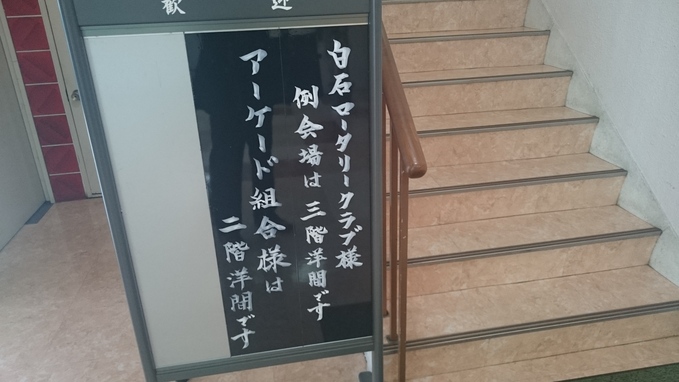 歓迎
白石ロータリークラブ様
例会場は三階洋間です
アーケード組合様は
二階洋間です